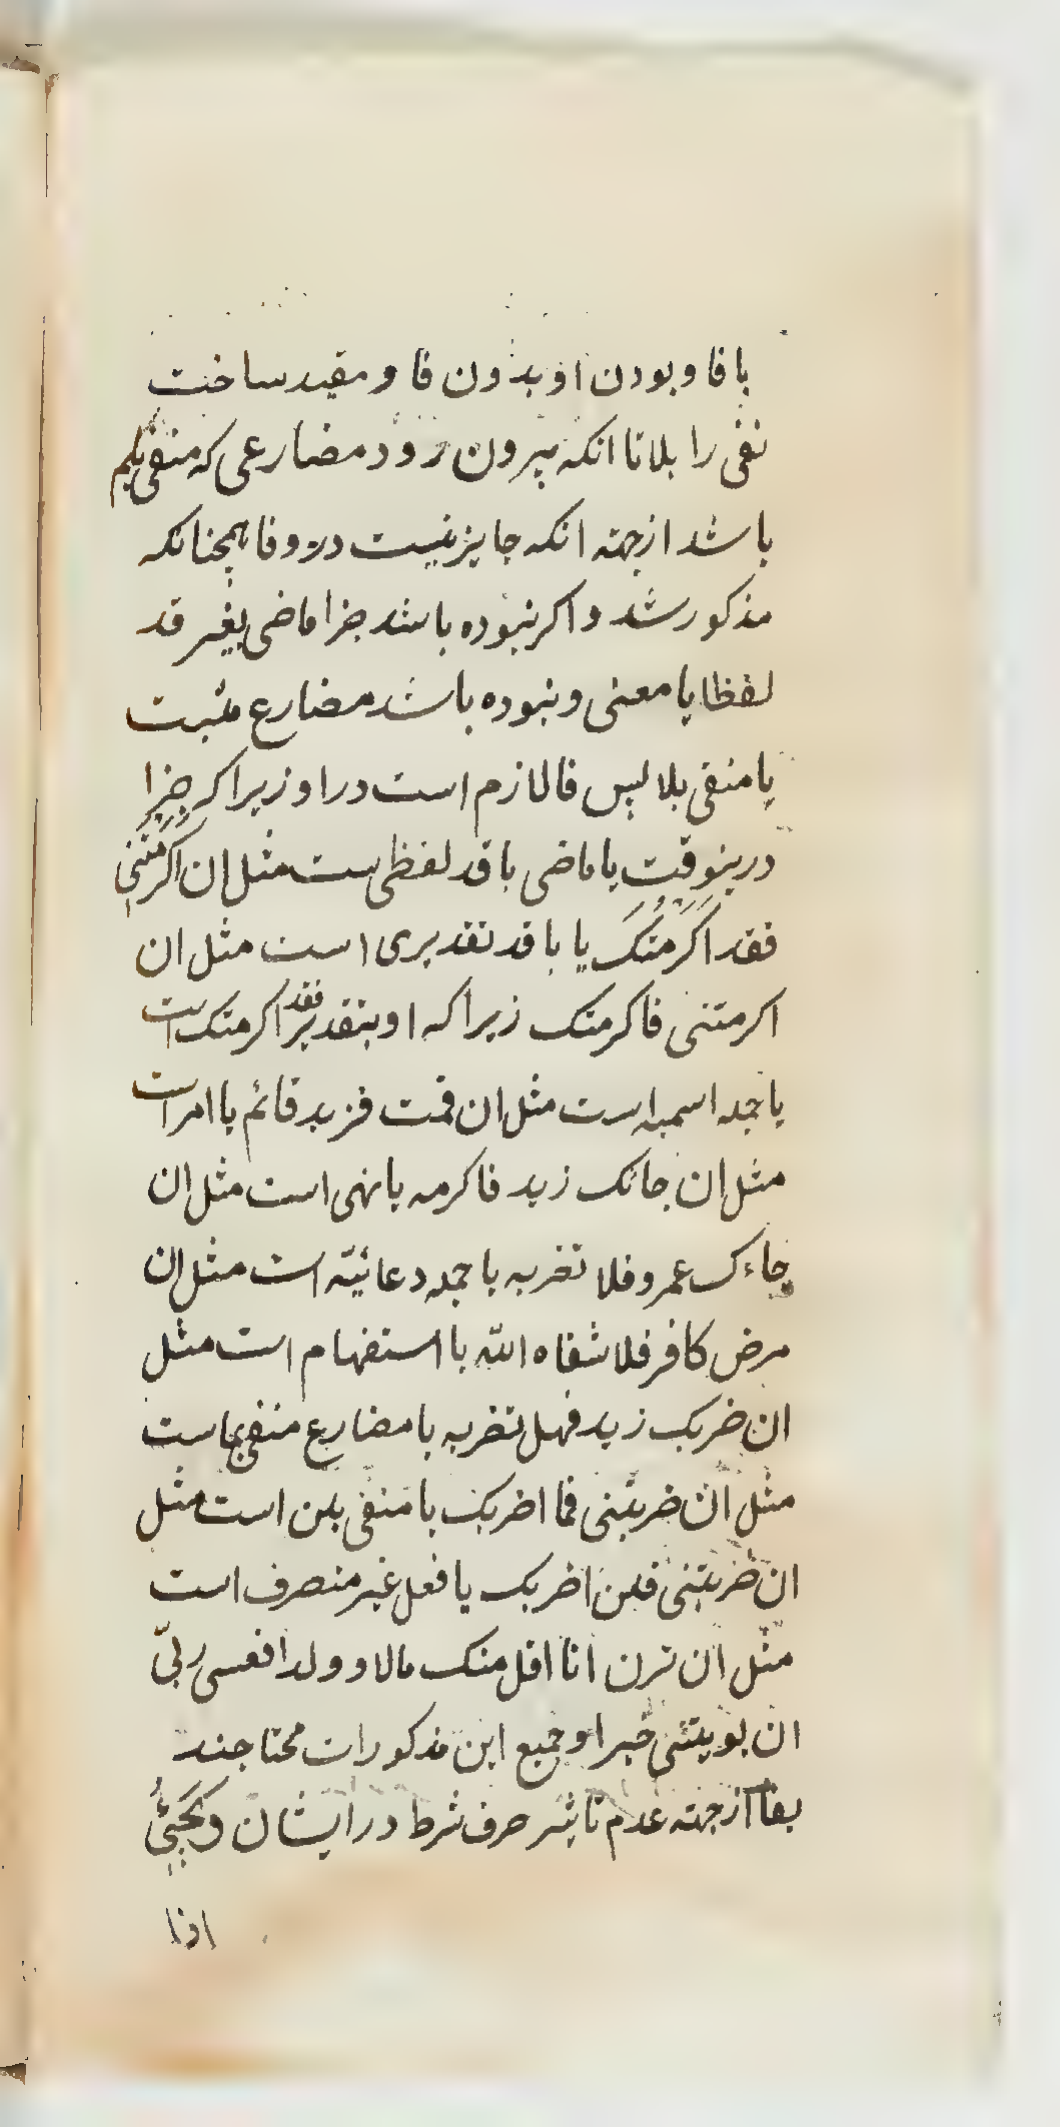 با فا و بودن او بدون فا و مقید ساخت
نفی را بلا تا انکه بیرون رود مضارعی که منفی بلم
باشد از جهته انکه جایز نیست درو فا همچنانکه
مذکور شد و اکر نبوده باشد جزا ماضی بغیر قد
لفظا یا معنی و نبوده باشد مضارع مثبت
یا منفی بلا پس فا لازم است در او زیرا که جزا
درینوقت یا ماضی با قد لفظی ست مثل ان اکرمتنی
فقد اکرمتک یا با قد تقدیری است مثل ان
اکرمتنی فاکرمتک زیرا که او بتقدیر فقد اکرمتک است
یا جمله اسمیه است مثل ان قمت فزید قائم یا امر است
مثل ان جائک زید فاکرمه یا نهی است مثل ان
جاءک عمرو فلا تضربه یا جمله دعائیّه است مثل ان
مرض کافر فلا شفاه اللّه یا استفهام است مثل
ان ضربک زید فهل تضربه یا مضارع منفی بماست
مثل ان ضربتنی فما اضربک یا منفی بلن است مثل
ان ضربتنی فلن اضربک یا فعل غیر منصرف است
مثل ان ترن انا اقل منک مالا و ولدا فعسی ربّی
ان یویتنی خیرا و جمیع این مذکورات محتاجند
بفا از جهته عدم تاثیر حرف شرط در ایشان و یَجیئُ
اذا